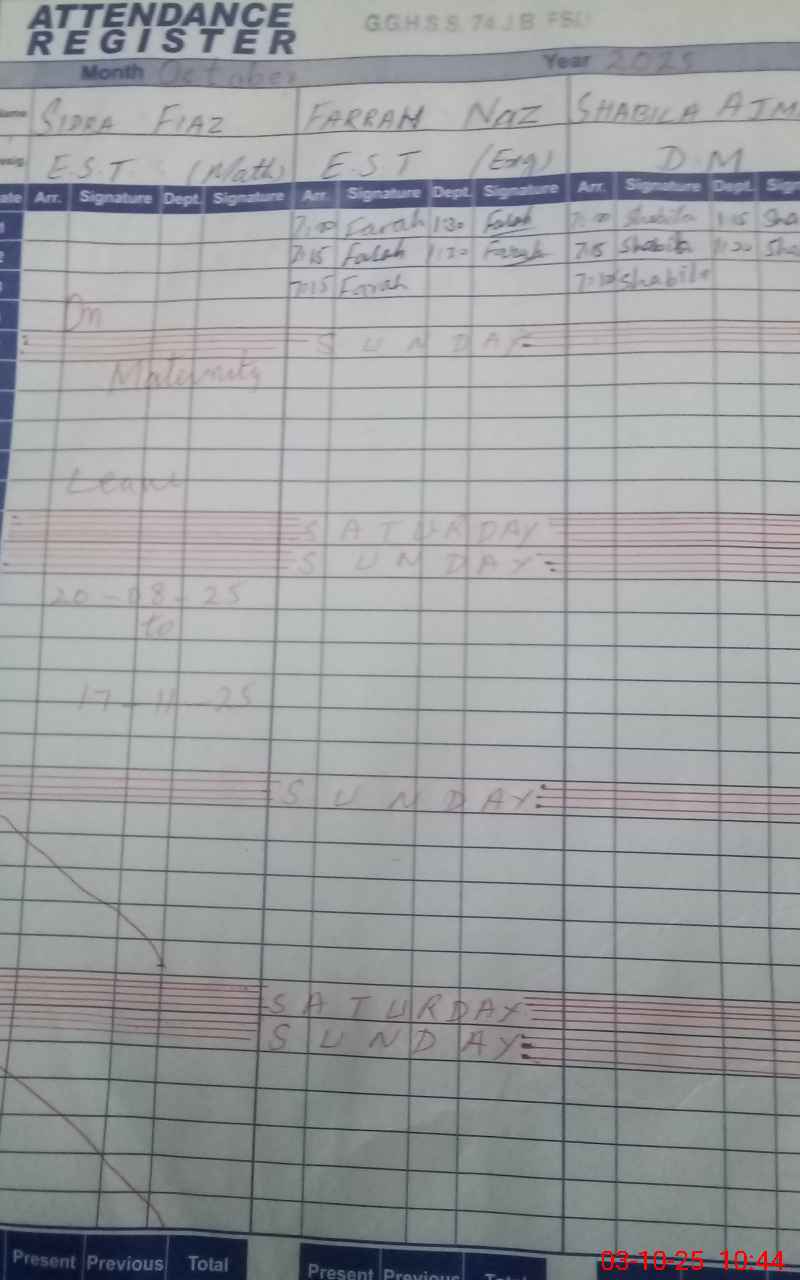 ATTENDANCE
REGISTER
G.G.H.S.S. 74 J.B FSD
Month October Year 2025
Name SIDRA FIAZ FARRAH NAZ SHABILA AJM
E.S.T (Math) E.S.T (Eng) D.M
Arr. Signature Dept. Signature Arr. Signature Dept. Signature Arr. Signature Dept.
7:00 Farah 1:30 Farah 7:00 Shabila 1:15 Sha
7:15 Farah 1:30 Farah 7:15 Shabila 1:30 Sha
7:15 Farah 7:10 Shabila
On
SUNDAY
Maternity
Leave
SATURDAY
SUNDAY
20-08-25
to
17-11-25
SUNDAY
SATURDAY
SUNDAY
Present Previous Total Present Previous Total
03-10-25 10:44